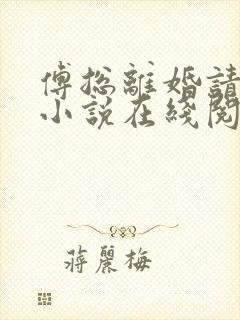 傅総離婚請
小説在綫閱
蔣麗梅